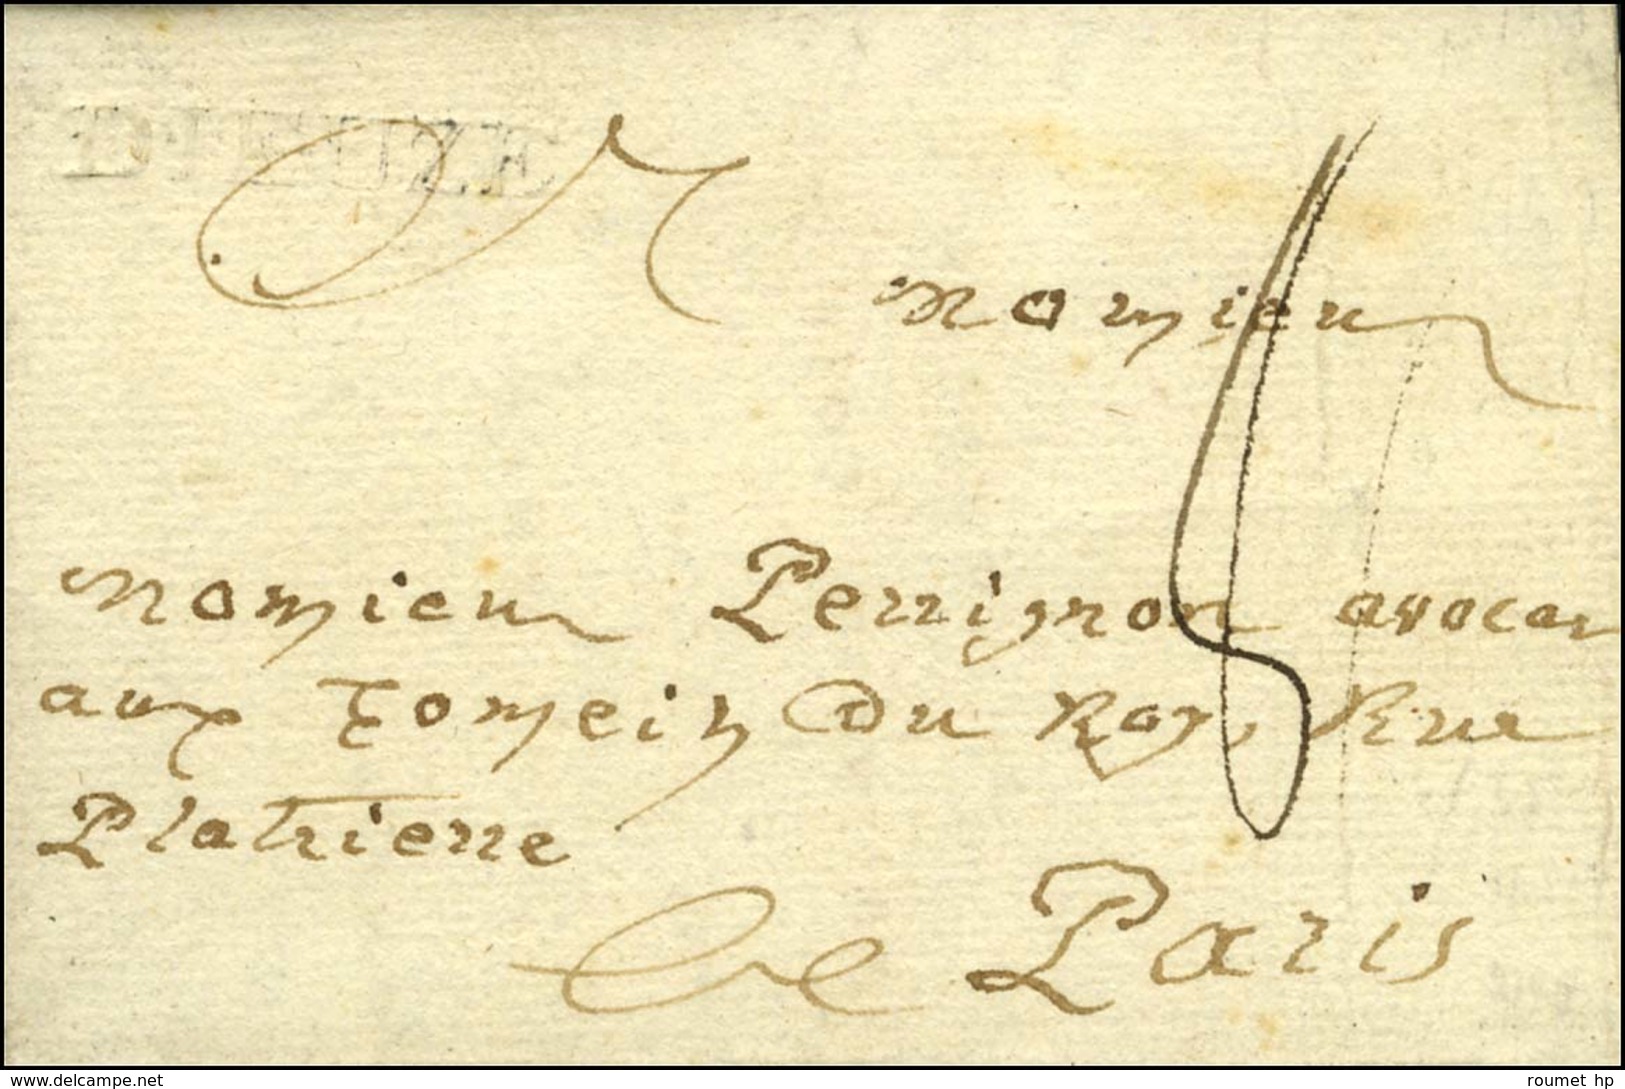 DIEUZE
A
Monsieur
Monsieur Perrignon avocat
aux Conseils du Roy, Rue
Platrierre
A Paris
www.delcampe.net
roumet hp